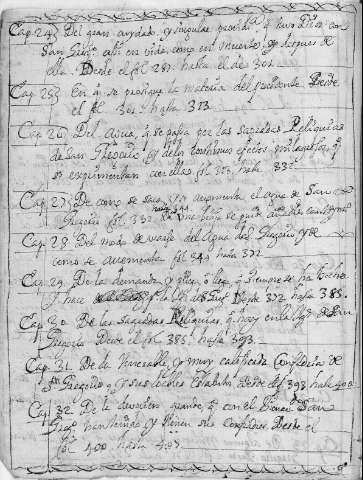 Cap. 24. Del gran cuydado, y singular provid.ª q̃ tuvo Dios con
San Greg.º asi en vida, como en muerte, y despues de
ella. Desde el fol. 287. hasta el de 301.
Cap. 25. En q̃ se prosigue la materia del precedente. Desde
el fol. 301. hasta 313.
Cap. 26. Del Agua, q̃ se pasa por las sagradas Reliquias
de San Gregorio, y de los continuos efectos milagrosos, q̃
se experimentan con ellas. fol. 313. hasta 332.
Cap. 27. De como se saca, y se augmenta el agua de San
Gregorio fol. 332. hasta
Cap. 28. Del modo de usarse del Agua del Glorioso y de
como se acrecienta fol. 340. hasta 372.
Cap. 29. De la demanda, q̃ siempre se ha hecho
y hace Desde 372 hasta 385.
Cap. 30. De las sagradas Reliquias, q̃ hay en la Igl.ª de San
Gregorio Desde el fol. 385. hasta 393.
Cap. 31. De la Venerable, y muy calificada Confradia de
S.n Gregorio y sus loables Estatutos desde el 393 hasta 400
Cap. 32. De la devocion grande, q̃ con el Glorioso San
Greg.º han tenido, y tienen sus Confrades Desde el
fol. 400. hasta 407.